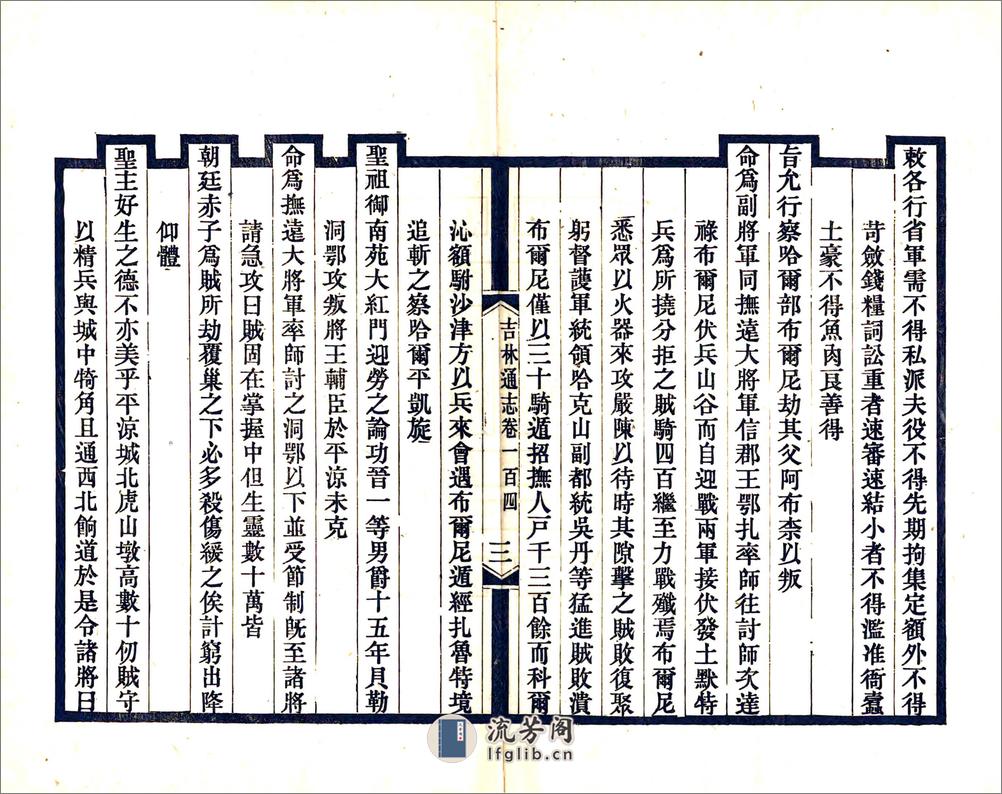 敕各行省軍需不得私派夫役不得先期拘集定額外不得
苛斂錢糧詞訟重者速審速結小者不得濫准衙蠹
土豪不得魚肉良善得
旨允行察哈爾部布爾尼劫其父阿布柰以叛
命爲副將軍同撫遠大將軍信郡王鄂扎率師往討師次達
祿布爾尼伏兵山谷而自迎戰兩軍接伏發土默特
兵爲所撓分拒之賊騎四百繼至力戰殲焉布爾尼
悉眾以火器來攻嚴陳以待時其隙擊之賊敗復聚
躬督護軍統領哈克山副都統吳丹等猛進賊敗潰
布爾尼僅以三十騎遁招撫人戸千三百餘而科爾
吉林通志卷一百四
三
沁額駙沙津方以兵來會遇布爾尼遁經扎魯特境
追斬之察哈爾平凱旋
聖祖御南苑大紅門迎勞之論功晉一等男爵十五年貝勒
洞鄂攻叛將王輔臣於平涼未克
命爲撫遠大將軍率師討之洞鄂以下並受節制旣至諸將
請急攻曰賊固在掌握中但生靈數十萬皆
朝廷赤子爲賊所劫覆巢之下必多殺傷緩之俟計窮出降
仰體
聖主好生之德不亦美乎平涼城北虎山墩高數十仞賊守
以精兵與城中犄角且通西北餉道於是令諸將曰
流芳阁
lfglib.cn